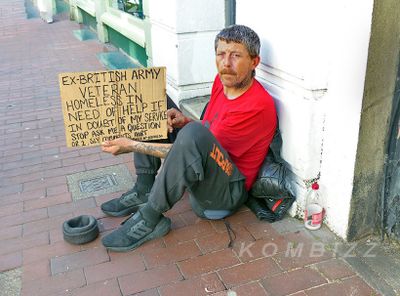 EX-BRITISH ARMY
VETERAN
HOMELESS IN
NEED OF HELP IF
IN DOUBT OF MY SERVICE
STOP ASK ME A QUESTION
KOMBIZZ